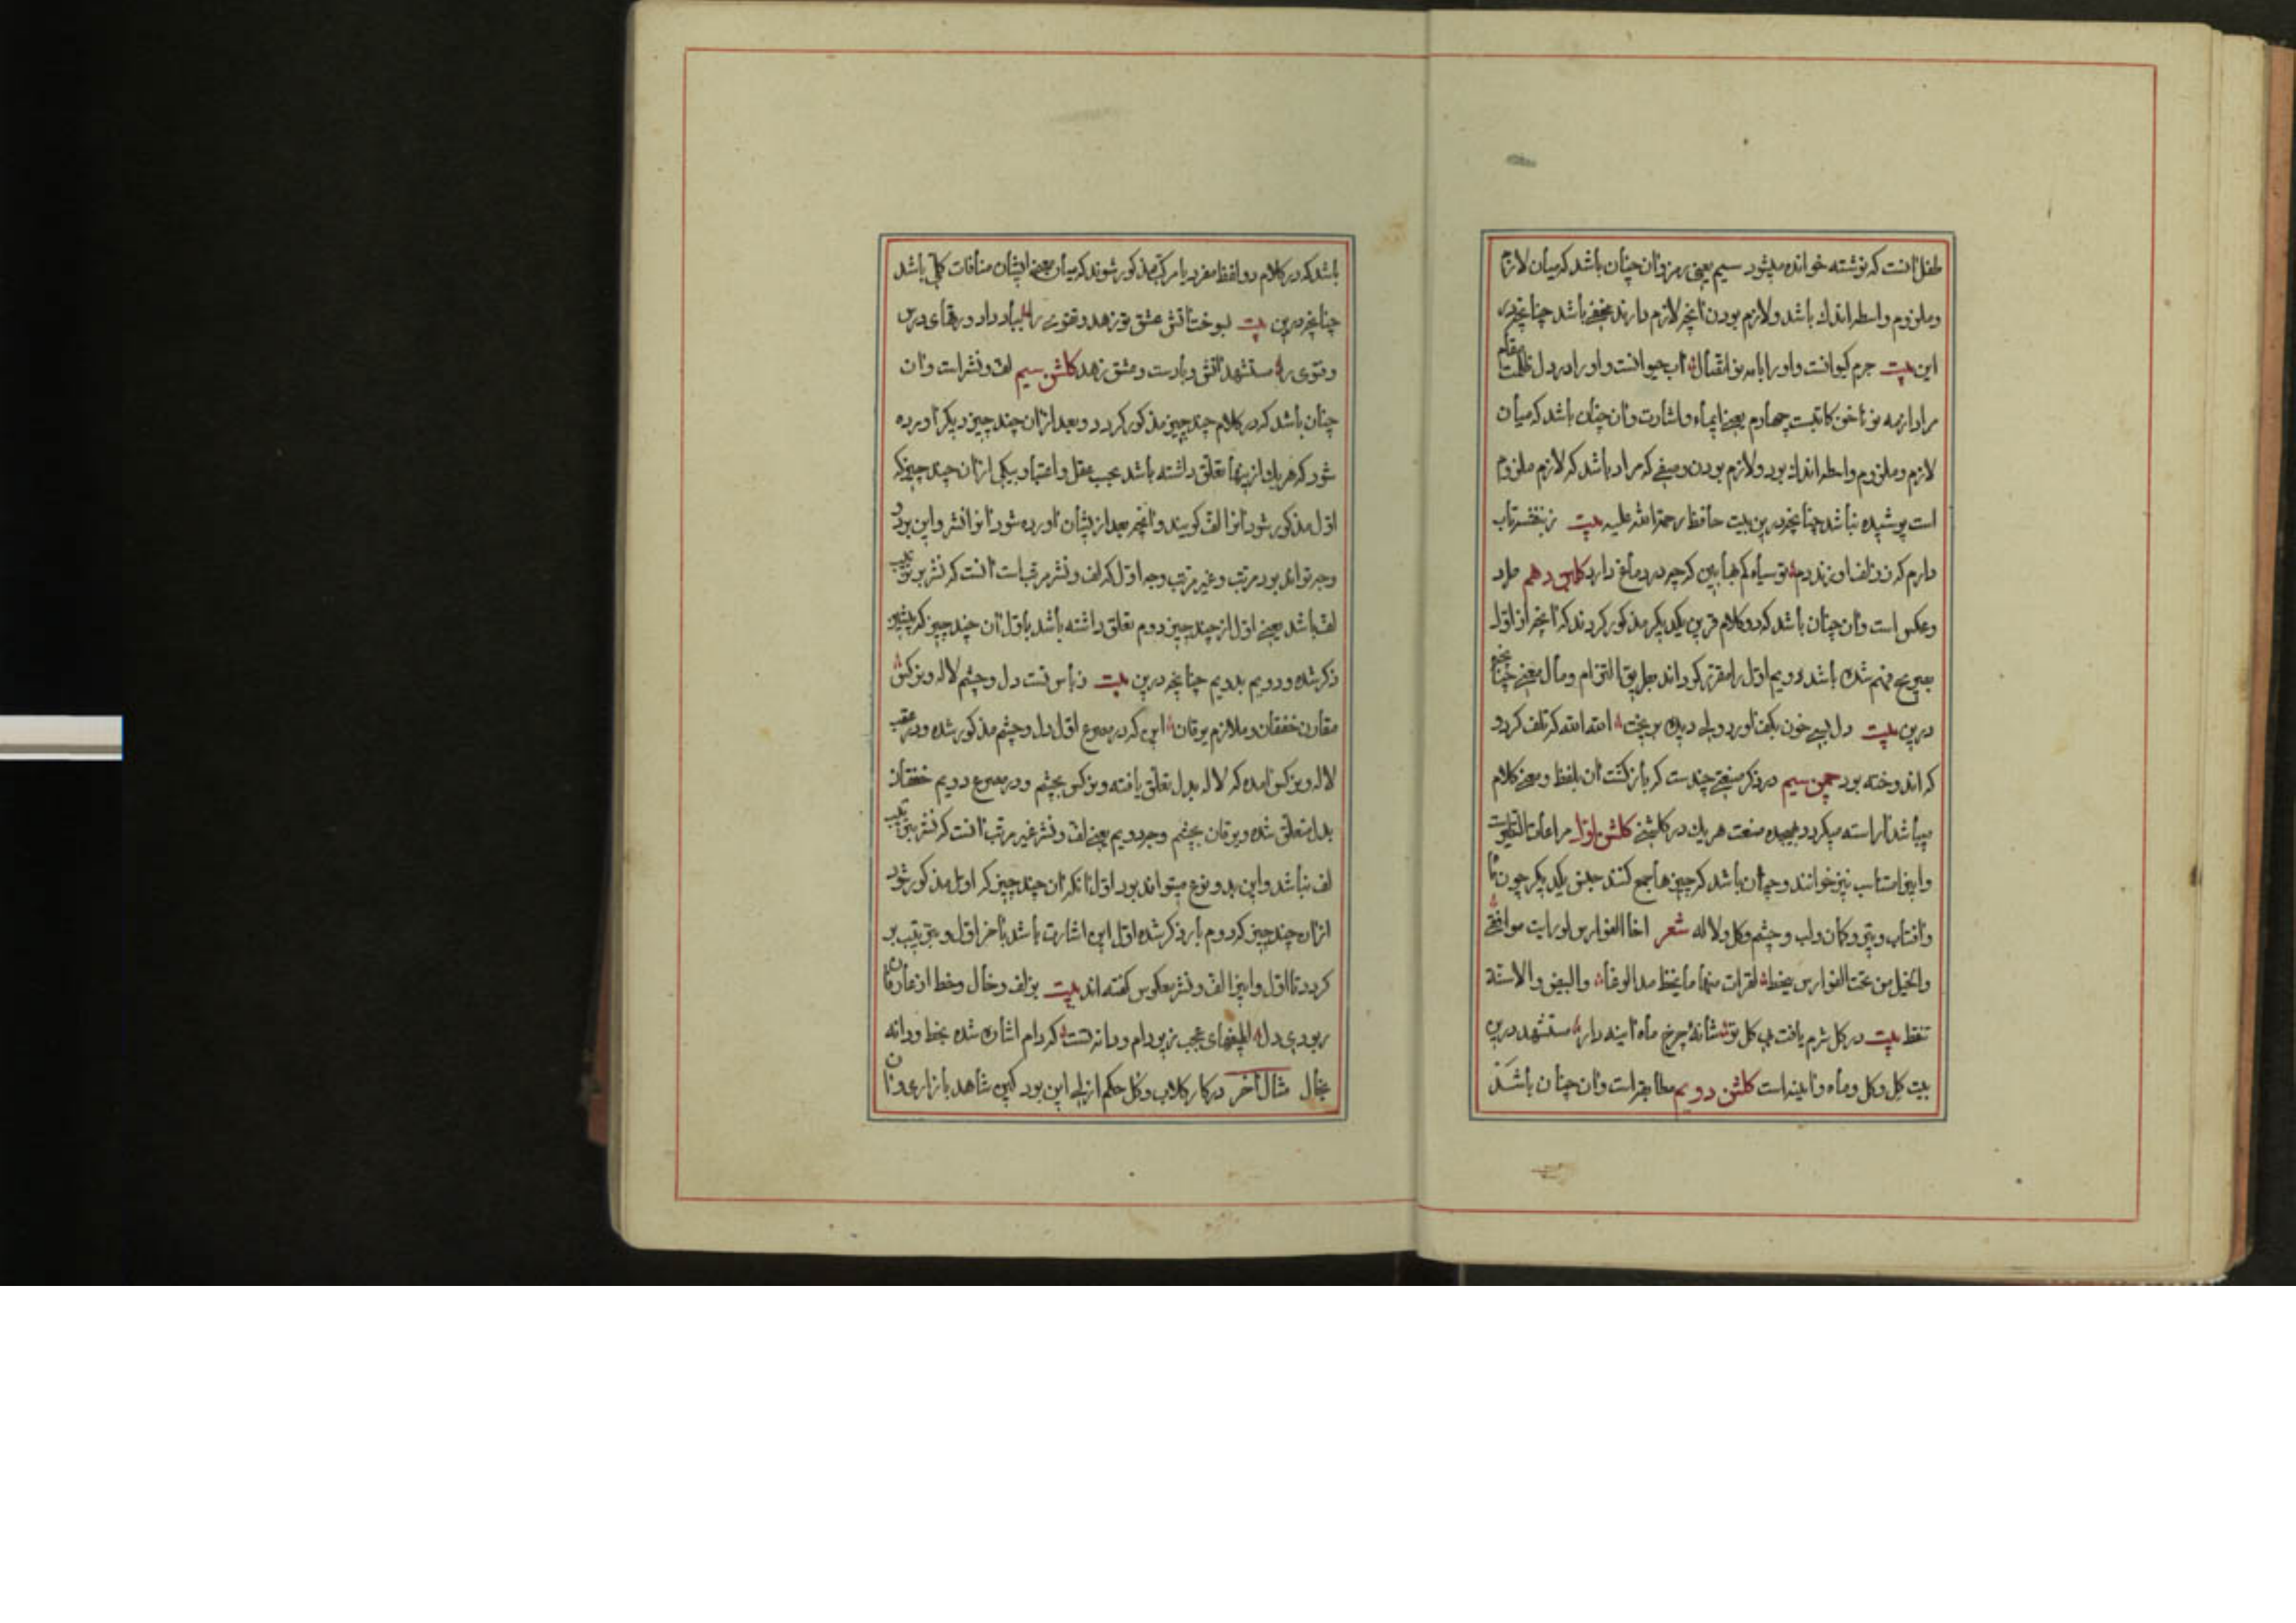 طفل آنست که نوشته خوانده میشود سیم یعنی رمز و آن چنان باشد که میان لازم
و ملزوم واسطه اندك باشد و لازم بودن آنچه لازم دارند مخفی باشد چنانچه در
این بیت جرم کیوانست و او را با مه نو اقتبال آب حیوانست و او را در دل ظلمت مقام
مراد از مه نو ناخن کاتبست چهارم یعنی ایماء و اشارت و آن چنان باشد که میان
لازم و ملزوم واسطه اندك بود و لازم بودن وصفی که مراد باشد که لازم ملزوم
است پوشیده نباشد چنانچه درین بیت حافظ رحمة الله علیه بیت ز بنفشه تاب
دارم که ز زلف او زند دم تو سیاه کم بها بین که چه در دماغ دارد کلبن دهم طرد
و عکس است و آن چنان باشد که دو کلام قرین یکدیکر مذکور کردند که آنچه از اول
بصریح فهم شده باشد دویم اول را مقرر کرداند بطریق التزام و مآل معنی چنانچه
درین بیت دل بسی خون بکف آورد ولی دیده بریخت الله الله که تلف کرد و
که اندوخته بود چمن سیم در ذکر صنعتی چندست که بازکشت آن بلفظ و معنی کلام
میباشد آراسته میکردد بهیجده صنعت هریك در کلشنی کلشن اول مراعات النظیرست
و اینرا متناسب نیز خوانند و چنان باشد که چیزها جمع کنند جنس یکدیکر چون ماه
و آفتاب و تیر و کمان و لب و چشم و کل و لاله شعر اخا الفوارس لو رایت مواقفی
و الخیل من تحت الفوارس یخط لقرات منها ما یخط ید الوغا و البیض و الاسنة
تنقط بیت در کل شرم یافت بی کل تو شانۀ چرخ ماه آینه دار مستشهد درین
بیت کل و کل و ماه و آینه است کلشن دویم مطابقه است و آن چنان باشد
باشد که در کلام دو لفظ مفرد یا مرکب مذکور شوند که میان معنی ایشان منافات کلی باشد
چنانچه درین بیت بسوخت آتش عشق تو زهد و تقوی را بباد داد ورقهای درس
و فتوی را مستشهد آتش و بادست و عشق زهد کلشن سیم لف و نشر است و آن
چنان باشد که در کلام چند چیز مذکور کردد و بعد از آن چند چیز دیکر آورده
شود که هریك از اینها تعلق داشته باشد بحسب عقل و اعتبار بیکی از آن چند چیز که
اول مذکور شود آنرا لف کویند و آنچه بعد از ایشان آورده شود آنرا نشر و این بر دو
وجه تواند بود مرتب و غیر مرتب وجه اول که لف و نشر مرتب است آنست که نشر بر ترتیب
لف باشد یعنی اول از چند چیز دوم تعلق داشته باشد باول آن چند چیز که پیشتر
ذکر شده و دویم بدویم چنانچه درین بیت ز باس تست دل و چشم لاله و نرکس
مقارن خفقان و ملازم یرقان این که در مصرع اول دل و چشم مذکور شده و در عقب
لاله و نرکس آمده که لاله بدل تعلق یافته و نرکس بچشم و در مصرع دویم خفقان
بدل متعلق شده و یرقان بچشم وجه دویم یعنی لف و نشر غیر مرتب آنست که نشر بترتیب
لف نباشد و این بدو نوع میتواند بود اول آنکه آن چند چیز که اول مذکور شود
از آن چند چیز که دوم بار ذکر شده اول این اشارت باشد بآخر اول و بترتیب بر
کردد تا اول و اینرا لف و نشر معکوس کفته اند بیت بزلف و خال و خط از عارفان
ربودی دل لطیفهای عجب زیر دام و دانه تست که دام اشاره شده بخط و دانه
بخال مثال آخر در کار کلاب و کل حکم ازلی این بود کین شاهد بازاری و آن